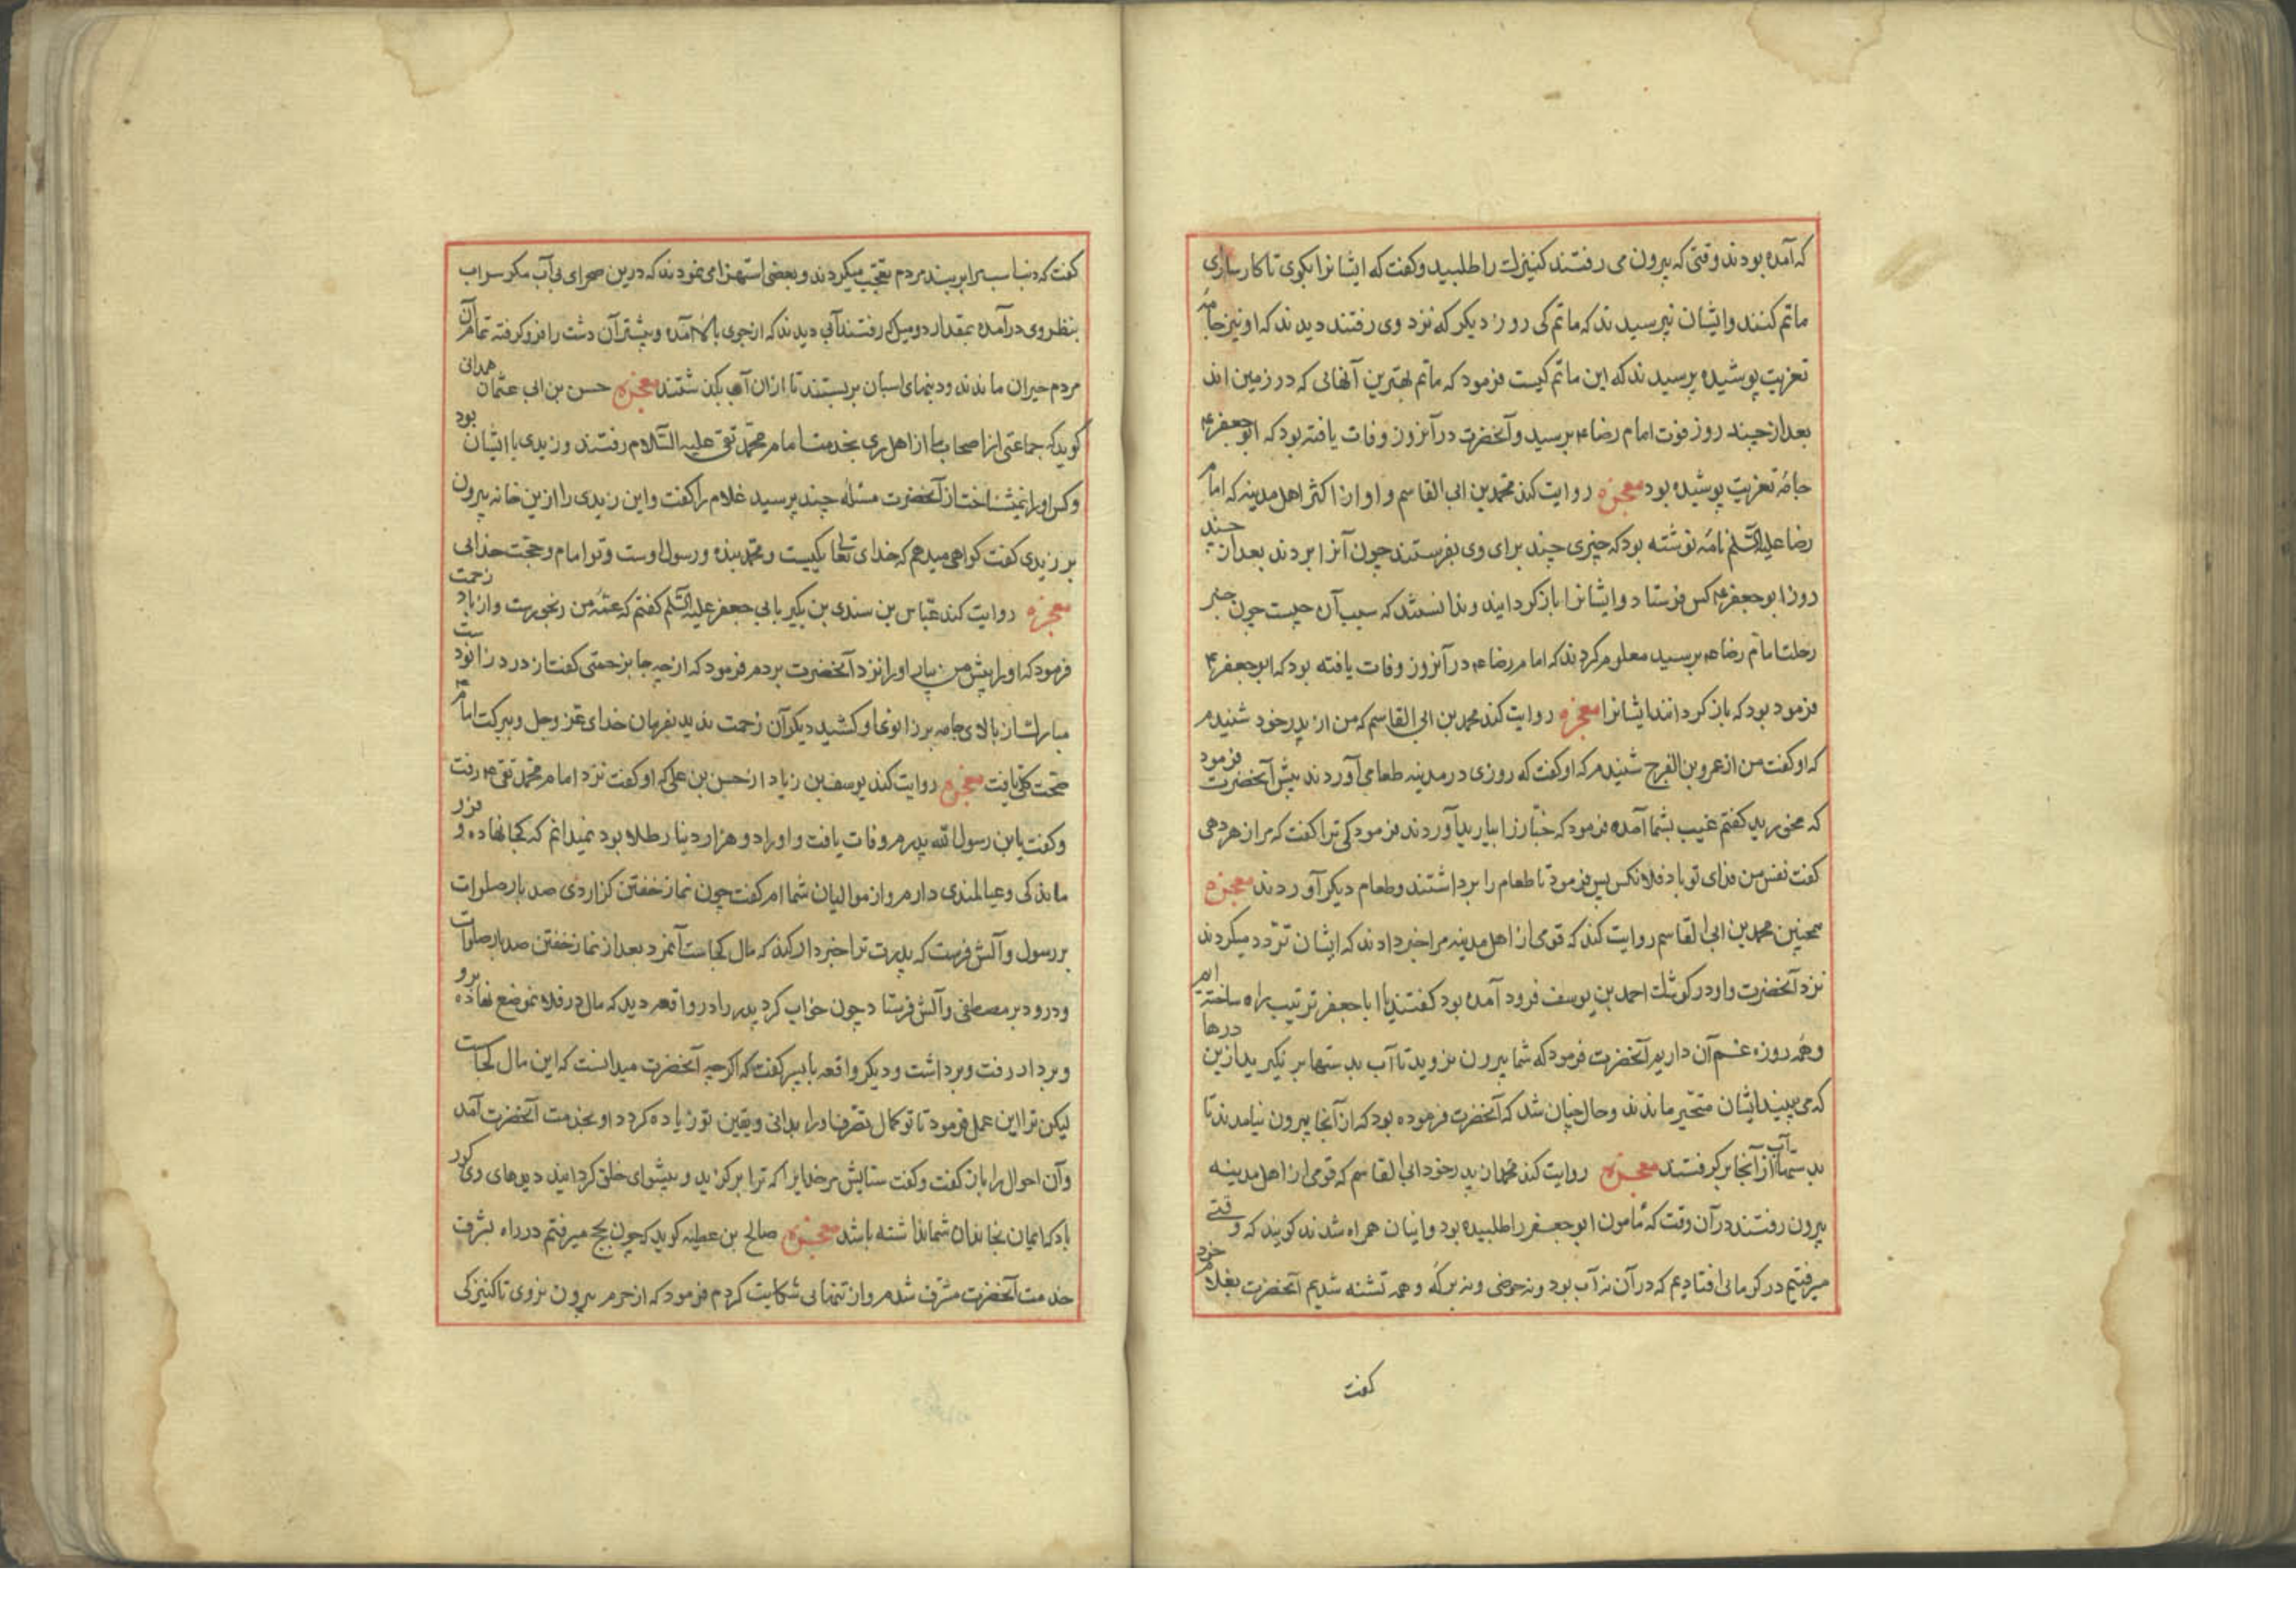 که آمده بودند وقتی که بیرون می رفتند کنیزک را طلبید و کفت که ایشانرا بکوی تا کار سازی
ماتم کنند و ایشان نپرسیدند که ماتم کی روز دیکر که نزد وی رفتند دیدند که او نیز جامهٔ
تعزیت پوشیده پرسیدند که این ماتم کیست فرمود که ماتم بهترین آنهائی که در زمین اند
بعد از چند روز فوت امام رضا ع برسید و آنحضرت در آنروز وفات یافته بود که ابو جعفر ع
جامهٔ تعزیت پوشیده بود معجزه روایت کند محمد بن ابی القاسم و او از اکثر اهل مدینه که امام
رضا علیه السلم نامهٔ نوشته بود که چیزی چند برای وی بفرستند چون آنرا بردند بعد از چند
روز ابو جعفر ع کس فرستاد و ایشانرا باز کردانید و ندانستند که سبب آن چیست چون خبر
رحلت امام رضا ع برسید معلوم کردند که امام رضا ع در آنروز وفات یافته بود که ابو جعفر ع
فرمود بود که باز کردانند ایشانرا معجزه روایت کند محمد بن ابی القاسم که من از پدر خود شنیدم
که او کفت من از عمرو بن الفرج شنیدم که او کفت که روزی در مدینه طعامی آوردند پیش آنحضرت فرمود
که مخورید کفتم غیب بشما آمده فرمود که خبّاز را بیارید آوردند فرمود کی ترا کفت که مرا زهر دهی
کفت نفس من فدای تو باد فلانکس پس فرمود تا طعام را برداشتند و طعام دیکر آوردند معجزه
همچنین محمد بن ابی القاسم روایت کند که قومی از اهل مدینه مرا خبر دادند که ایشان تردد میکردند
نزد آنحضرت و او در کوشک احمد بن یوسف فرود آمده بود کفتند یا ابا جعفر ترتیب راه ساخته ایم
و همه روزه غم آن داریم آنحضرت فرمود که شما بیرون نروید تا آب بدستها بر نکیرید ازین درها
که می بینید ایشان متحیر ماندند و حال چنان شد که آنحضرت فرموده بود که از آنجا بیرون نیامدند تا
بدستها آب از آنجا بر کرفتند معجزه روایت کند محمد از پدر خود ابی القاسم که قومی از اهل مدینه
بیرون رفتند در آن وقت که مامون ابو جعفر را طلبیده بود و اینان همراه شدند کویند که وقتی
میرفتیم در کرمائی افتادیم که در آن نه آب بود و نه حوضی و نه برکهٔ و همه تشنه شدیم آنحضرت بغلام خود
کفت
کفت که دنبا اسبرا ببندید مردم تعجب میکردند و بعضی استهزا می نمودند که درین صحرای بی آب مکر سراب
بنظر وی در آمده بمقدار دو میل که رفتند آبی دیدند که از جوی بالا آمده و بیشتر آن دشت را فرو کرفته تمام آن
مردم حیران ماندند و دمهای اسبان بر بستند تا از ان آب بکذشتند معجزه حسن بن ابی عثمان همدانی
کوید که جماعتی از اصحاب ما از اهل ری بخدمت امام محمد تقی علیه السّلام رفتند و زیدی با ایشان بود
و کس او را نمیشناخت از آنحضرت مسئلهٔ چند پرسید غلام را کفت و این زیدی را ازین خانه بیرون
بر زیدی کفت کواهی میدهم که خدای تعالی یکیست و محمد بنده و رسول اوست و تو امام و حجت خدائی
معجزه روایت کند عبّاس بن سندی بن بکیر بابی جعفر علیه السّلم کفتم که عمّهٔ من رنجورست و از باد زحمت
فرمود که او را پیش من بیار او را نزد آنحضرت بردم فرمود که از چه جا بزحمتی کفت از درد زانو دست
مبارک از بالای جامه بر زانوها و کشید دیکر آن زحمت ندید بفرمان خدای عز وجل و ببرکت امام ع
صحّت کلّی یافت معجزه روایت کند یوسف بن زیاد از حسن بن علی که او کفت نزد امام محمّد تقی ع رفت
و کفت یا بن رسول الله پدرم وفات یافت و او را دو هزار دینار طلا بود نمیدانم که کجا نهاده و فرو
مانده کی و عیالمندی دارم و از موالیان شما ام کفت چون نماز خفتن کزاردی صد بار صلوات
بر رسول و آلش فرست که پدرت ترا خبردار کند که مال کجاست آنمرد بعد از نماز خفتن صد بار صلوات
و درود بر مصطفی و آلش فرستاد چون خواب کرد پدر را در واقعه دید که مال در فلانموضع نهاده برو
و بردار رفت و برداشت و دیکر واقعه با پسر کفت که اکرچه آنحضرت میدانست که این مال کجاست
لیکن ترا این عمل فرمود تا تو کمال تصرف او را بدانی و یقین تو زیاده کردد او بخدمت آنحضرت آمد
و آن احوال را باز کفت و کفت ستایش مر خدایرا که ترا بر کزید و پیشوای خلق کردانید دیدهای وی کور
باد که ایمان بخاندان شما نداشته باشد معجزه صالح بن عطیه کوید که چون بحج میرفتم در راه بشرف
خدمت آنحضرت مشرف شدم و از تنهائی شکایت کردم فرمود که از حرم بیرون نروی تا کنیزکی